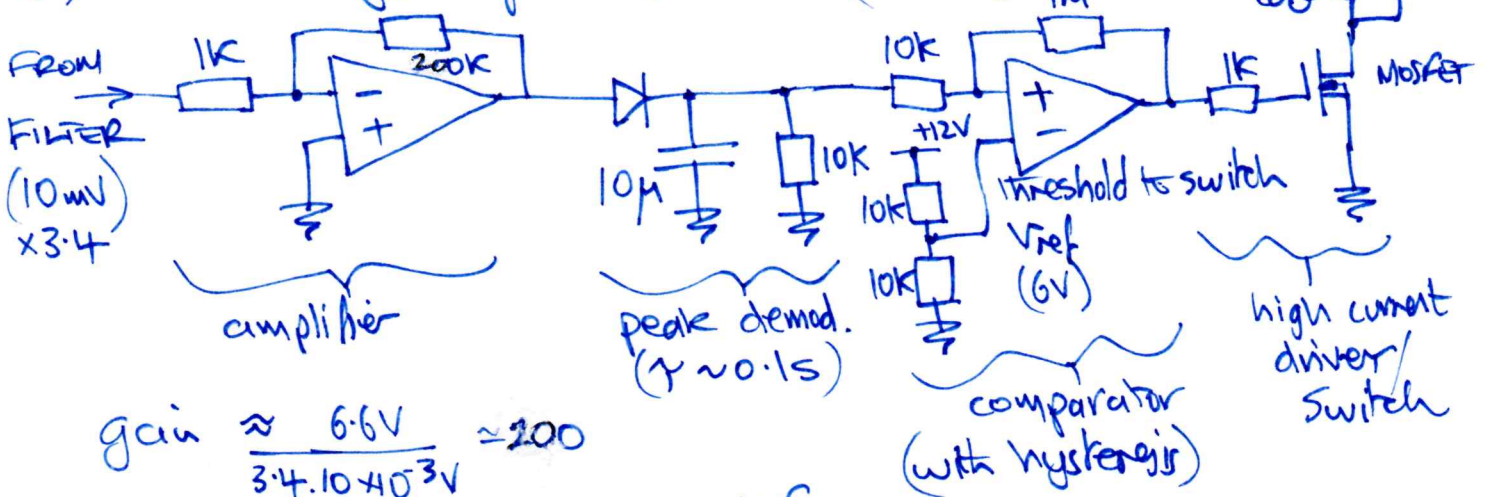 FROM
FILTER
(10mV)
×3.4
1K
200K
−
+
amplifier
10μ
10K
peak demod.
(τ ~0.1s)
10K
+12V
10K
10K
+
−
threshold to switch
Vref
(6V)
comparator
(with hysteresis)
1K
MOSFET
high current
driver/
switch
gain ≈ 6.6V / 3.4.10×10⁻³V ≃200